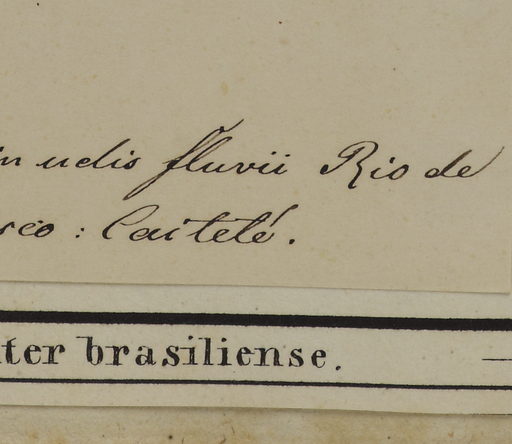 in udis fluvii Rio de
sco : Caiteté.
ter brasiliense.